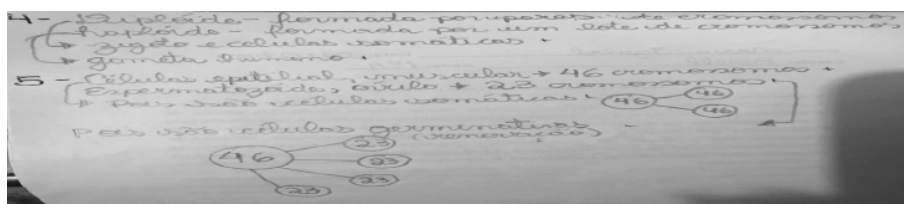 4 - Diploide - formada por pares de cromossomos
haploide - formada por um lote de cromossomos
→ zigoto e células somáticas.
→ gameta humano.
5 - Células epitelial, muscular → 46 cromossomos.
Espermatozoide, óvulo → 23 cromossomos.
→ pois são células somáticas. 46 46 46
pois são células germinativas
(renovação)
46 23 23 23 23